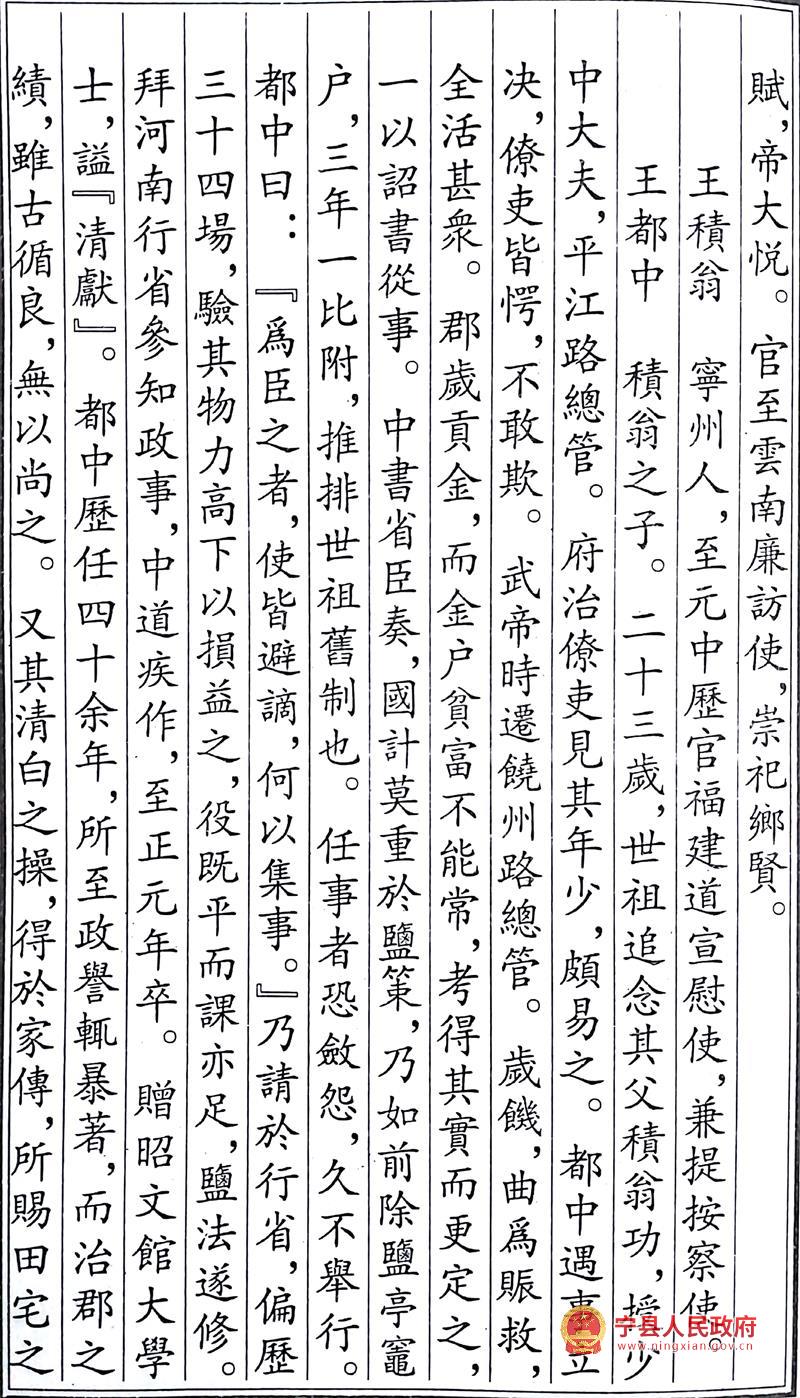 賦，帝大悦。官至雲南廉訪使，崇祀鄉賢。
王積翁　寧州人，至元中歷官福建道宣慰使，兼提按察使。
王都中　積翁之子。二十三歲，世祖追念其父積翁功，授少
中大夫，平江路總管。府治僚吏見其年少，頗易之。都中遇事立
决，僚吏皆愕，不敢欺。武帝時遷饒州路總管。歲饑，曲爲賑救，
全活甚衆。郡歲貢金，而金户貧富不能常，考得其實而更定之，
一以詔書從事。中書省臣奏，國計莫重於鹽策，乃如前除鹽亭竈
户，三年一比附，推排世祖舊制也。任事者恐斂怨，久不舉行。
都中曰：『爲臣之者，使皆避謫，何以集事。』乃請於行省，偏歷
三十四場，驗其物力高下以損益之，役既平而課亦足，鹽法遂修。
拜河南行省參知政事，中道疾作，至正元年卒。贈昭文館大學
士，謚『清獻』。都中歷任四十余年，所至政譽輒暴著，而治郡之
績，雖古循良，無以尚之。又其清白之操，得於家傳，所賜田宅之
宁县人民政府
www.ningxian.gov.cn